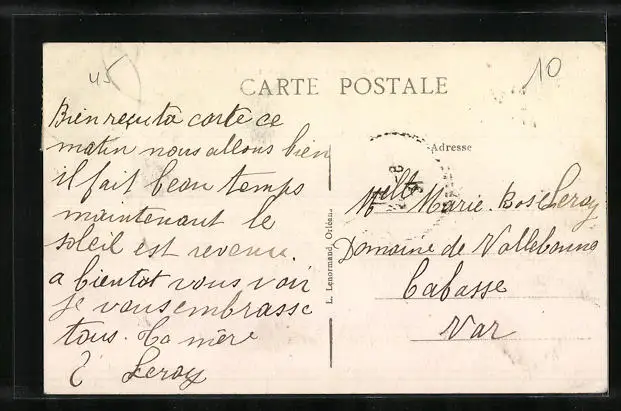 45
10
CARTE POSTALE
Bien reçu ta carte ce
matin nous allons bien
il fait beau temps
maintenant le
soleil est revenu.
a bientot vous voir
je vous embrasse
tous. Ta mère
Leroy
L. Lenormand, Orléans
Adresse
Melle Marie. Rose Leroy
Domaine de Vallebonne
Cabasse
Var